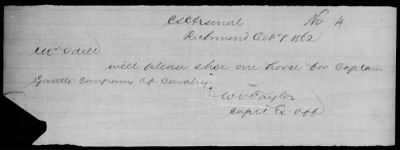 CS Arsenal No 4
Richmond Oct 7. 1862
Mr
will please shoe one horse for Captain
Company of Cavalry
W Taylor
Capt Ex off